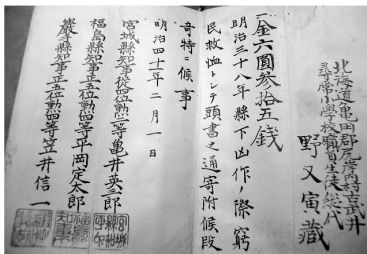 北海道亀田郡尻岸内村古武井
尋常小学校職員生徒総代
野又寅藏
一金六圓参拾五銭
明治三十八年縣下凶作ノ際窮
民救恤トシテ頭書之通寄附候段
奇特ニ候事
明治四十一年二月一日
宮城縣知事従四位勲二等亀井英三郎
福島縣知事正五位勲四等平岡定太郎
巖手縣知事正五位勲四等笠井信一